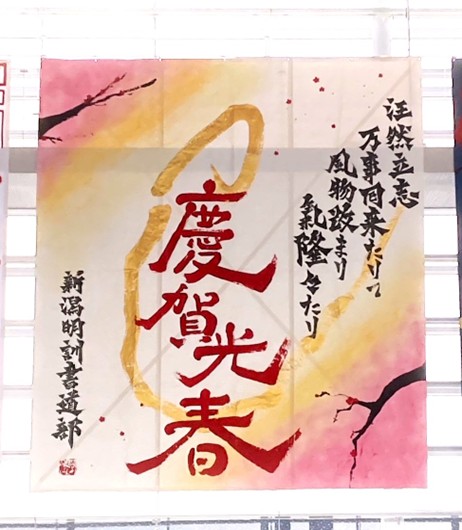 汪然立志
万事自来たりて
風物改まり
気隆々たり
慶賀光春
新潟明訓書道部